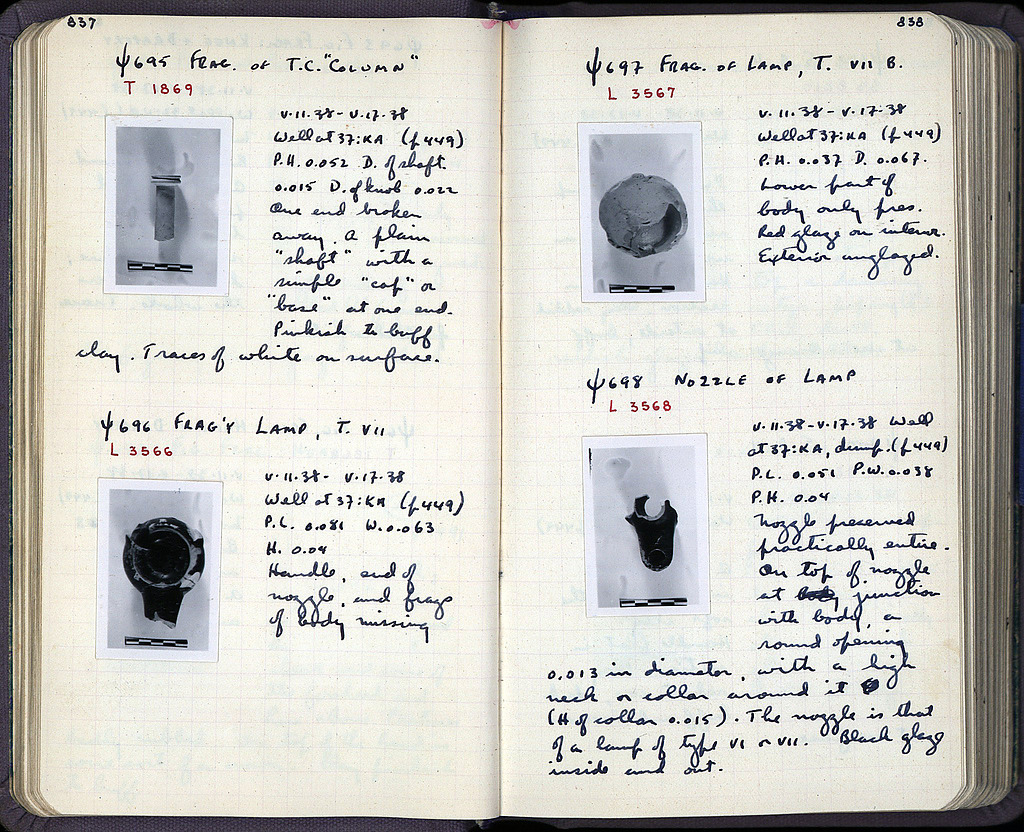 837
ψ695 FRAG. OF T.C. "COLUMN"
T 1869
V.11.38 - V.17.38
Well at 37:KA (p 449)
P.H. 0.052 D. of shaft
0.015 D. of knob 0.022
One end broken
away. A plain
"shaft" with a
simple "cap" or
"base" at one end.
Pinkish to buff
clay. Traces of white on surface.
ψ696 FRAG'Y LAMP, T. VII
L 3566
V.11.38 - V.17.38
Well at 37:KA (p 449)
P.L. 0.081 W. 0.063
H. 0.04
Handle, end of
nozzle, and frags
of body missing
838
ψ697 FRAG. OF LAMP, T. VII B.
L 3567
V.11.38 - V.17.38
Well at 37:KA (p 449)
P.H. 0.037 D. 0.067.
Lower part of
body only pres.
Red glaze on interior.
Exterior unglazed.
ψ698 NOZZLE OF LAMP
L 3568
V.11.38 - V.17.38 Well
at 37:KA, dump. (p 449)
P.L. 0.051 P.W. 0.038
P.H. 0.04
Nozzle preserved
practically entire.
On top of nozzle
at body junction
with body, a
round opening
0.013 in diameter, with a high
neck or collar around it
(H of collar 0.015). The nozzle is that
of a lamp of type VI or VII. Black glaze
inside and out.